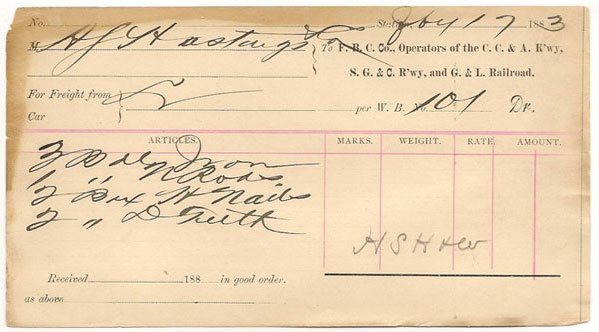 No. Station, Feby 17 1883
M H S Hastings To F. B. C. Co., Operators of the C. C. & A. K'wy,
S. G. & C. R'wy, and G. & L. Railroad.
For Freight from per W. B. No. 101 Dr.
Car
ARTICLES. MARKS. WEIGHT. RATE. AMOUNT.
3 Bdls Iron
1 " N Rods
2 Bux H Nails
2 " D Teeth
H S H
Received 188 in good order.
as above